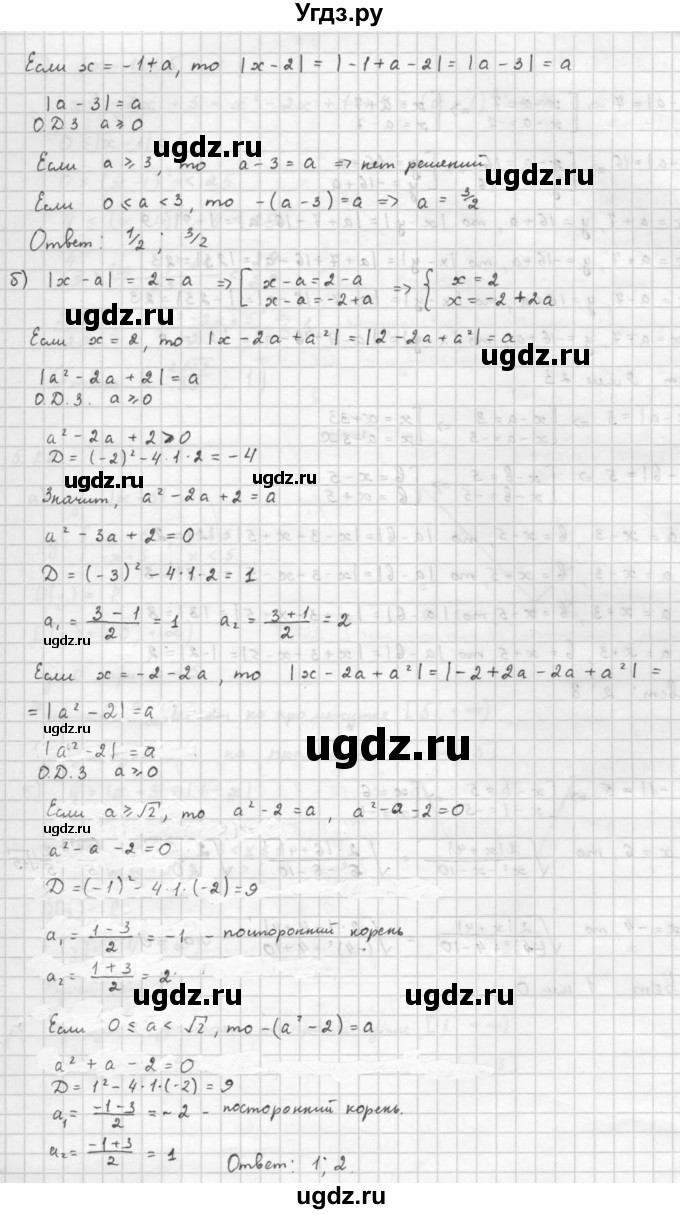 Угдз.ру
Если x = -1+a, то |x-2| = |-1+a-2| = |a-3| = a
|a-3| = a
О.Д.З a ⩾ 0
ugdz.ru
Если a ⩾ 3, то a-3 = a => нет решений
ugdz.ru
Если 0 ⩽ a < 3, то -(a-3) = a => a = 3/2
Ответ: 1/2 ; 3/2
б) |x-a| = 2-a => [ x-a = 2-a => { x = 2
x-a = -2+a x = -2+2a
ugdz.ru
Если x = 2, то |x-2a+a²| = |2-2a+a²| = a
ugdz.ru
|a²-2a+2| = a
О.Д.З. a ⩾ 0
a² - 2a + 2 > 0
D = (-2)² - 4·1·2 = -4
ugdz.ru ugdz.ru
Значит, a² - 2a + 2 = a
a² - 3a + 2 = 0
D = (-3)² - 4·1·2 = 1
a₁ = (3-1)/2 = 1 a₂ = (3+1)/2 = 2
ugdz.ru
Если x = -2-2a, то |x-2a+a²| = |-2+2a-2a+a²| =
= |a²-2| = a
ugdz.ru
ugdz.ru
|a²-2| = a
О.Д.З a ⩾ 0
Если a ⩾ √2, то a²-2 = a, a²-a-2 = 0
ugdz.ru
a² - a - 2 = 0
D = (-1)² - 4·1·(-2) = 9
a₁ = (1-3)/2 = -1 - посторонний корень
ugdz.ru
a₂ = (1+3)/2 = 2
ugdz.ru ugdz.ru
Если 0 ⩽ a < √2, то -(a²-2) = a
a² + a - 2 = 0
D = 1² - 4·1·(-2) = 9
a₁ = (-1-3)/2 = -2 - посторонний корень.
ugdz.ru
a₂ = (-1+3)/2 = 1 Ответ: 1; 2.
ugdz.ru ugdz.ru
ugdz.ru